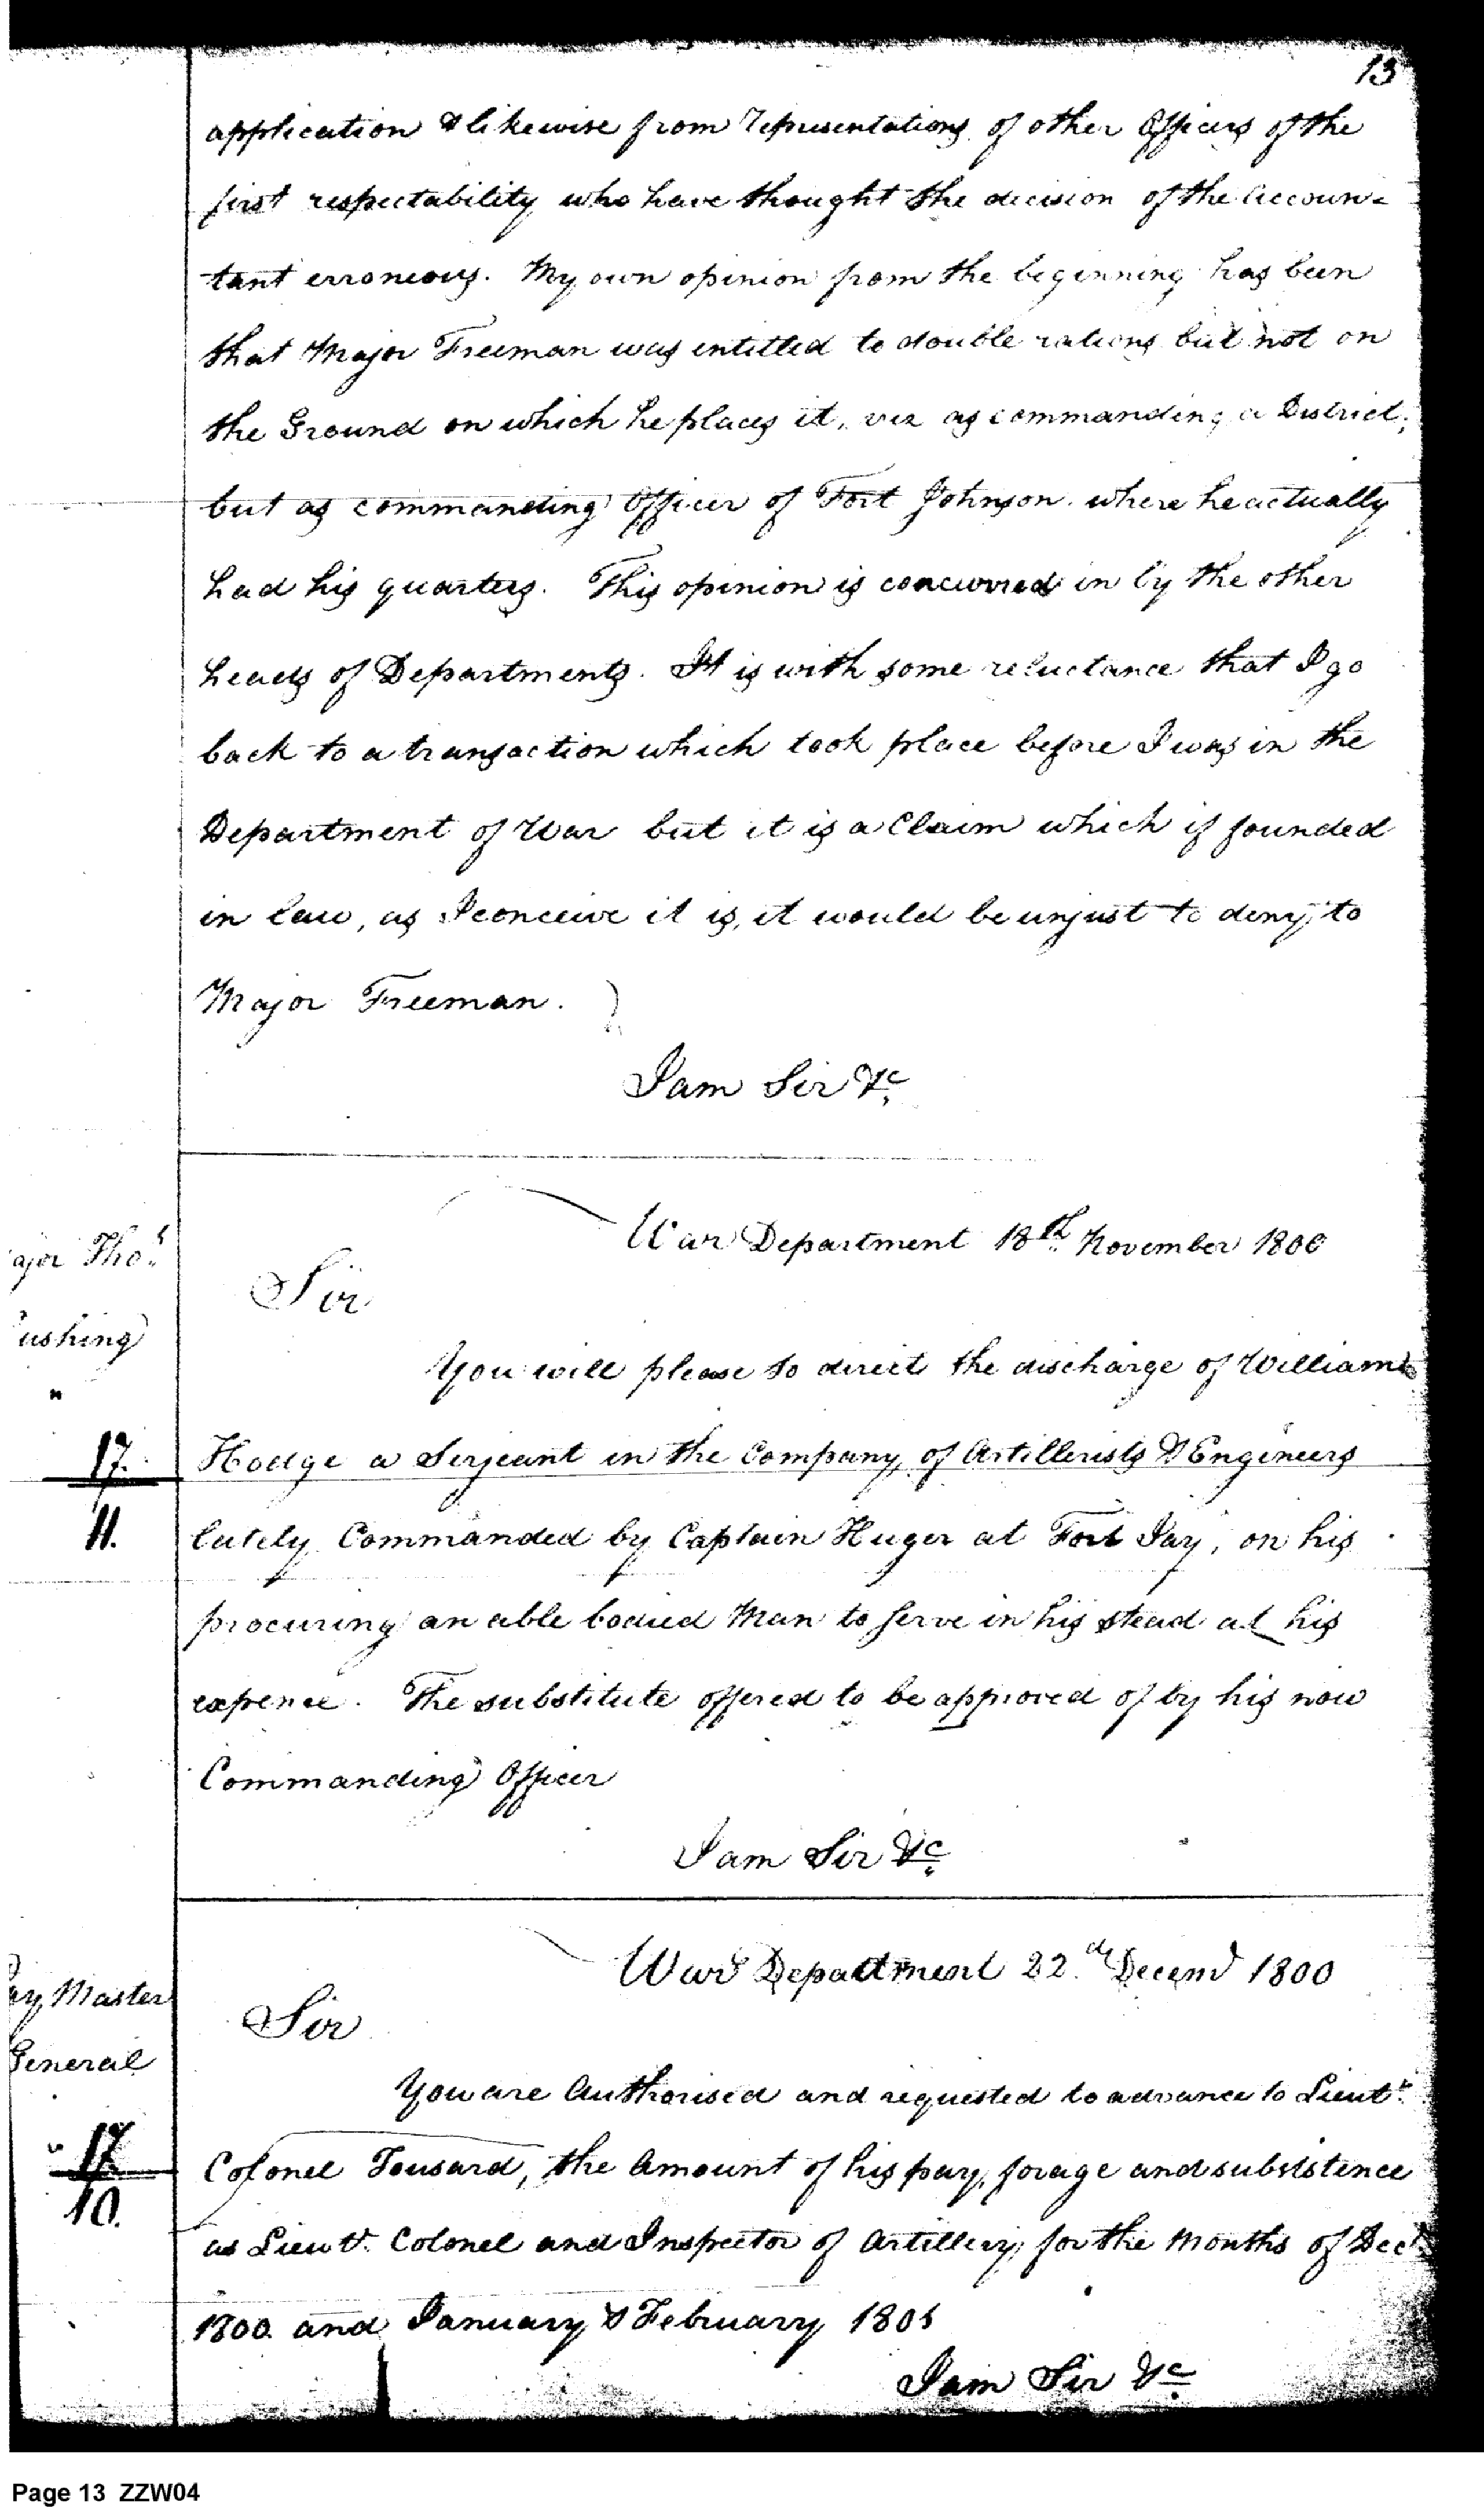 13
application & likewise from representations of other Officers of the
first respectability who have thought the decision of the accoun=
tant erroneous. My own opinion from the beginning has been
that Major Freeman was entitled to double rations but not on
the Ground on which he places it, viz as commanding a District,
but as commanding Officer of Fort Johnson where he actually
had his quarters. This opinion is concurred in by the other
heads of Departments. It is with some reluctance that I go
back to a transaction which took place before I was in the
Department of War but it is a Claim which if founded
in law, as I conceive it is, it would be unjust to deny to
Major Freeman.
I am Sir &c
War Department 18th November 1800
ajor Thos
Sir
ushing
You will please to direct the discharge of William
"
17.
Hodge a Serjeant in the Company of Artillerists & Engineers
11.
lately Commanded by Captain Huger at Fort Jay, on his
procuring an able bodied Man to serve in his stead at his
expence. The substitute offered to be approved of by his now
Commanding Officer
I am Sir &c
War Department 22.d Decemr 1800
ay Master
Sir
General
You are Authorised and requested to advance to Lieutt
17
Colonel Tousard, the Amount of his pay, forage and subsistence
10.
as Lieut. Colonel and Inspector of Artillery, for the Months of Decr
1800 and January & February 1801
I am Sir &c
Page 13 ZZW04